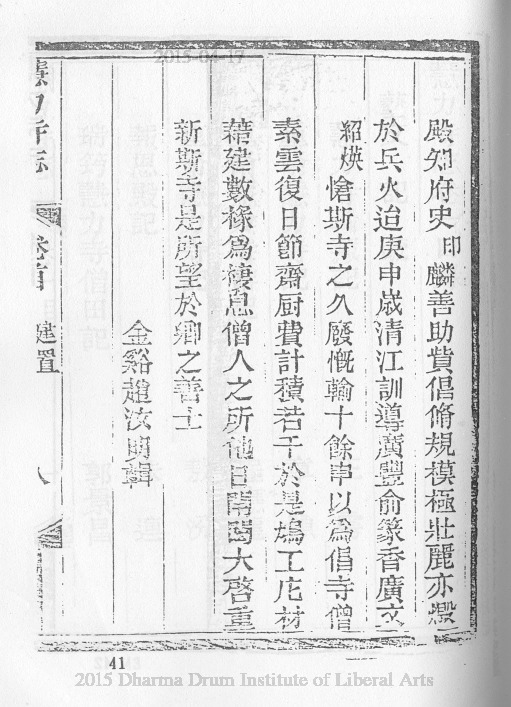 2015-04-17
殿知府史印麟善助貲倡脩規模極壯麗亦燬
於兵火迨庚申歲清江訓導廣豐俞篆香廣文
紹煐愴斯寺之久廢慨輸十餘串以為倡寺僧
素雲復日節齋厨費計積若干於是鳩工庀材
藉建數椽為棲息僧人之所他日開闊大啓重
新斯寺是所望於鄉之善士
金谿趙汝明輯
慧力寺志 卷首 建置 八
41
2015 Dharma Drum Institute of Liberal Arts